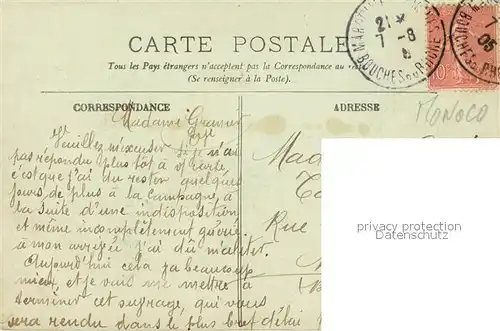 CARTE POSTALE
Tous les Pays étrangers n'acceptent pas la Correspondance au
(Se renseigner à la Poste).
CORRESPONDANCE
ADRESSE
MONACO
21
7-8
BOUCHES DU RHONE
10
7
05
Madame
Veuillez m'excuser si je n'ai
pas répondu plus tôt à v/ carte,
c'est que j'ai du rester quelques
jours de plus à la Campagne, à
la suite d'une indisposition
et même incomplètement guérie
à mon arrivée j'ai dû m'aliter.
Aujourd'hui cela va beaucoup
mieux, et je vais me mettre à
terminer cet ouvrage, qui vous
sera rendu dans le plus bref délai
Mada
Rue
privacy protection
Datenschutz